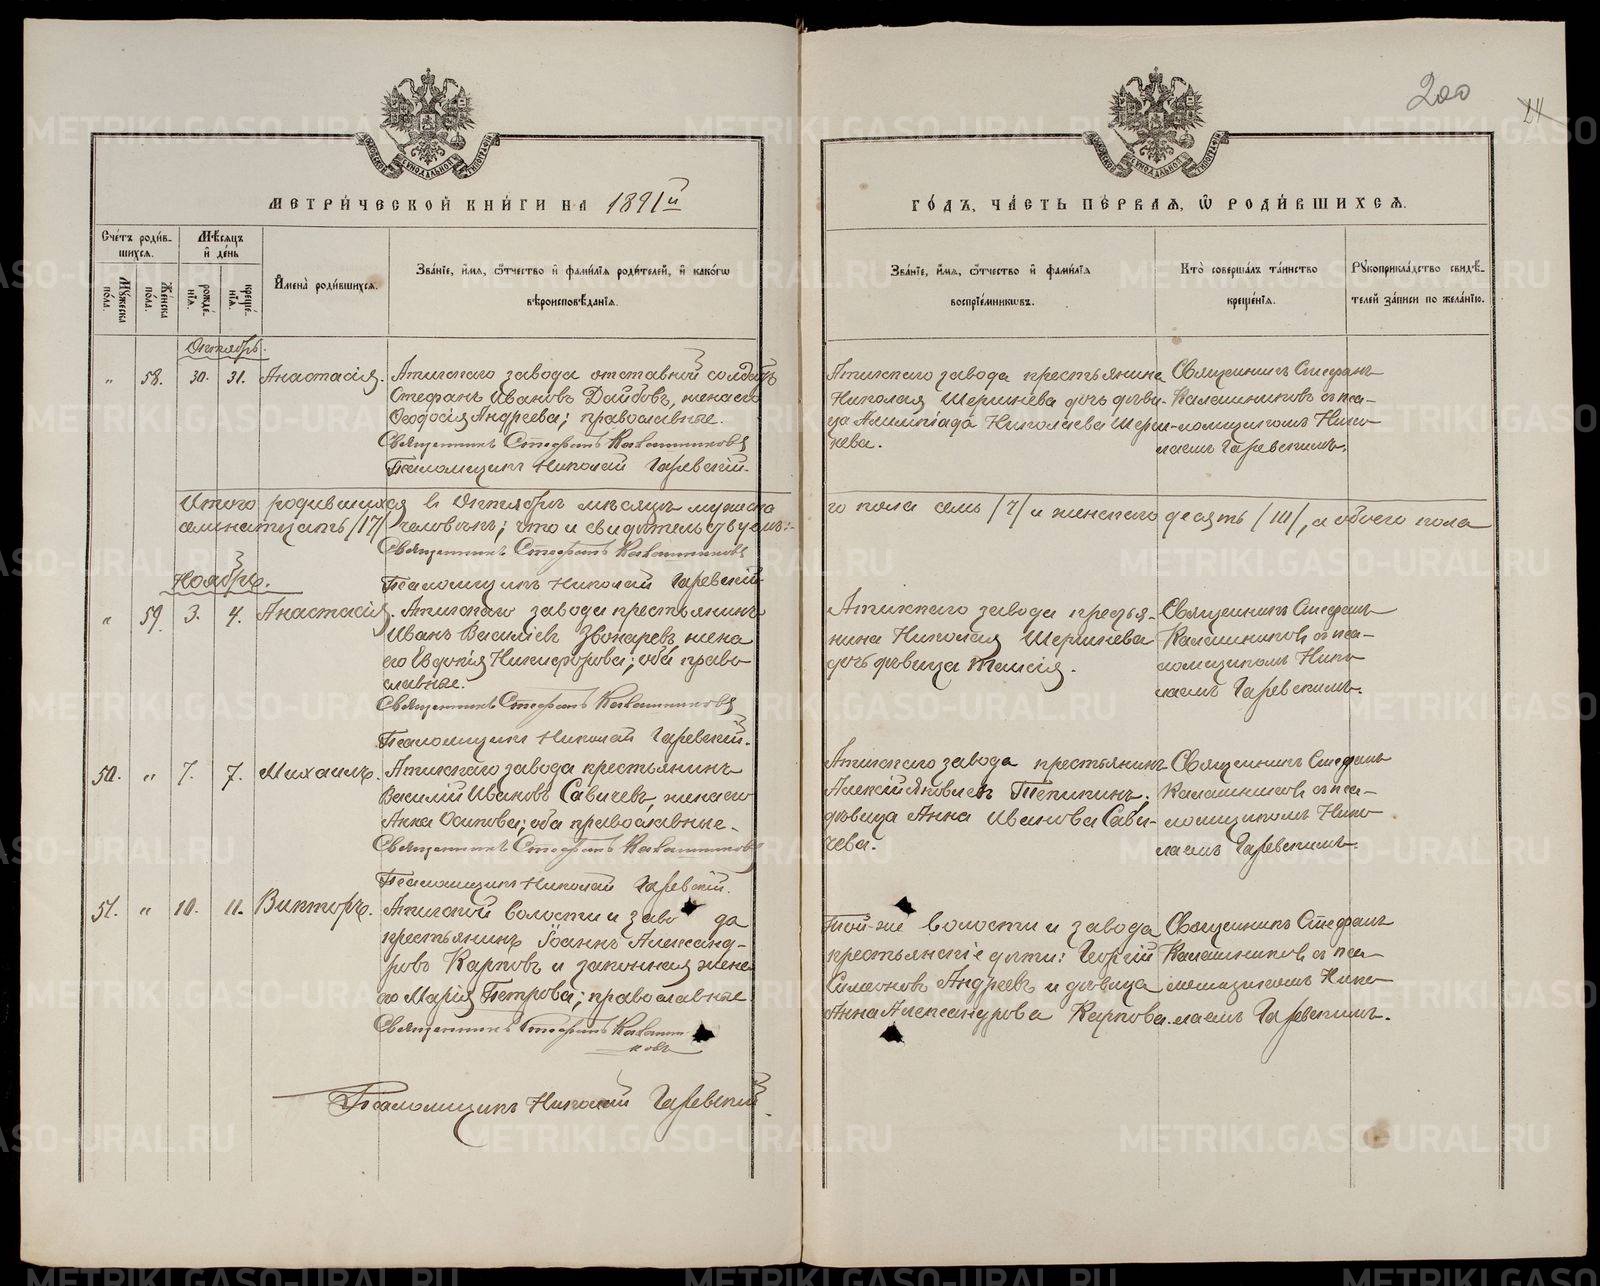 200
МЕТРИ́ЧЕСКОЙ КНИ́ГИ НА 1891й
ГО́ДЪ, ЧА́СТЬ ПЕ́РВАЯ, Ѡ РОДИ́ВШИХСЯ.
Сче́тъ роди́в-
шихся.
Му́жеска по́ла.
Же́нска по́ла.
Мѣ́сяцъ и де́нь
рожде́нія.
креще́нія.
Имена̀ роди́вшихся.
Зва́ніе, и́мя, ѻ҆́тчество и фами́лія роди́телей, и како́гѡ
вѣроисповѣ́данія.
Зва́ніе, и́мя, ѻ҆́тчество и фами́лія
воспрїе́мникѡвъ.
Кто̀ соверша́лъ та́инство
креще́нія.
Рукоприкла́дство свидѣ́-
телей за́писи по жела́нію.
Октябрь.
" 58. 30. 31. Анастасія. Атигскаго завода отставной солдатъ
Стефанъ Ивановъ Дайбовъ, жена его
Ѳеодосія Андреева; православные.
Священникъ Стефанъ Калашниковъ
Псаломщикъ Николай Гаревскій.
Атигскаго завода крестьянина
Николая Шершнева дочь дѣви-
ца Алимпіада Николаева Шерш-
нева.
Священникъ Стефанъ
Калашниковъ съ пса-
ломщикомъ Нико-
лаемъ Гаревскимъ.
Итого родившихся въ Октябрѣ мѣсяцѣ мужска
го пола семь /7/ и женскаго десять /10/, а обоего пола
семнатцать /17/ человѣкъ; что и свидѣтельствуемъ:-
Священникъ Стефанъ Калашниковъ
Псаломщикъ Николай Гаревскій
Ноябрь.
" 59. 3. 4. Анастасія. Атигскаго завода крестьянинъ
Иванъ Василіевъ Звонаревъ, жена
его Евдокія Никифорова; оба право
славные.
Священникъ Стефанъ Калашниковъ
Псаломщикъ Николай Гаревскій.
Атигскаго завода крестья-
нина Николая Шершнева
дочь дѣвица Таисія.
Священникъ Стефанъ
Калашниковъ съ пса-
ломщикомъ Нико
лаемъ Гаревскимъ.
50. " 7. 7. Михаилъ. Атигскаго завода крестьянинъ
Василій Ивановъ Савичевъ, жена его
Анна Осипова; оба православные.
Священникъ Стефанъ Калашниковъ
Псаломщикъ Николай Гаревскій.
Атигскаго завода крестьянинъ
Алексій Яковлевъ Тепикинъ.
дѣвица Анна Иванова Сави-
чева.
Священникъ Стефанъ
Калашниковъ съ пса-
ломщикомъ Нико
лаемъ Гаревскимъ.
51. " 10. 11. Викторъ. Атигской волости и заво да
крестьянинъ Іоаннъ Александ-
ровъ Карповъ и законная жена
его Марія Петрова; православные
Священникъ Стефанъ Калашни
ковъ
Псаломщикъ Николай Гаревскій.
Той-же волости и завода
крестьянскіе дѣти: Георгій
Симеоновъ Андреевъ и дѣвица
Анна Александрова Карпова.
Священникъ Стефанъ
Калашниковъ съ пса-
ломщикомъ Нико
лаемъ Гаревскимъ.
METRIKI.GASO-URAL.RU